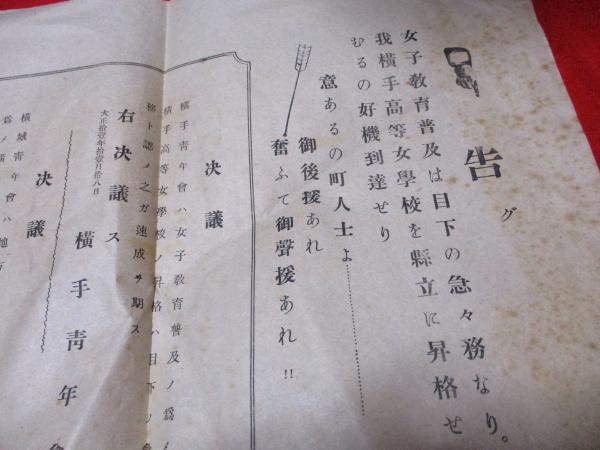 告グ
女子教育普及は目下の急々務なり。
我横手高等女學校を縣立に昇格せ
むるの好機到達せり
意あるの町人士よ………………
御後援あれ
奮ふて御聲援あれ!!
決議
横手靑年會ハ女子敎育普及ノ爲メ
横手高等女學校ノ昇格ハ目下ノ急
務ト認メ之ガ速成ヲ期ス
右決議ス
大正拾壹年拾壹月拾八日
横手靑年會
決議
横城靑年會ハ地方